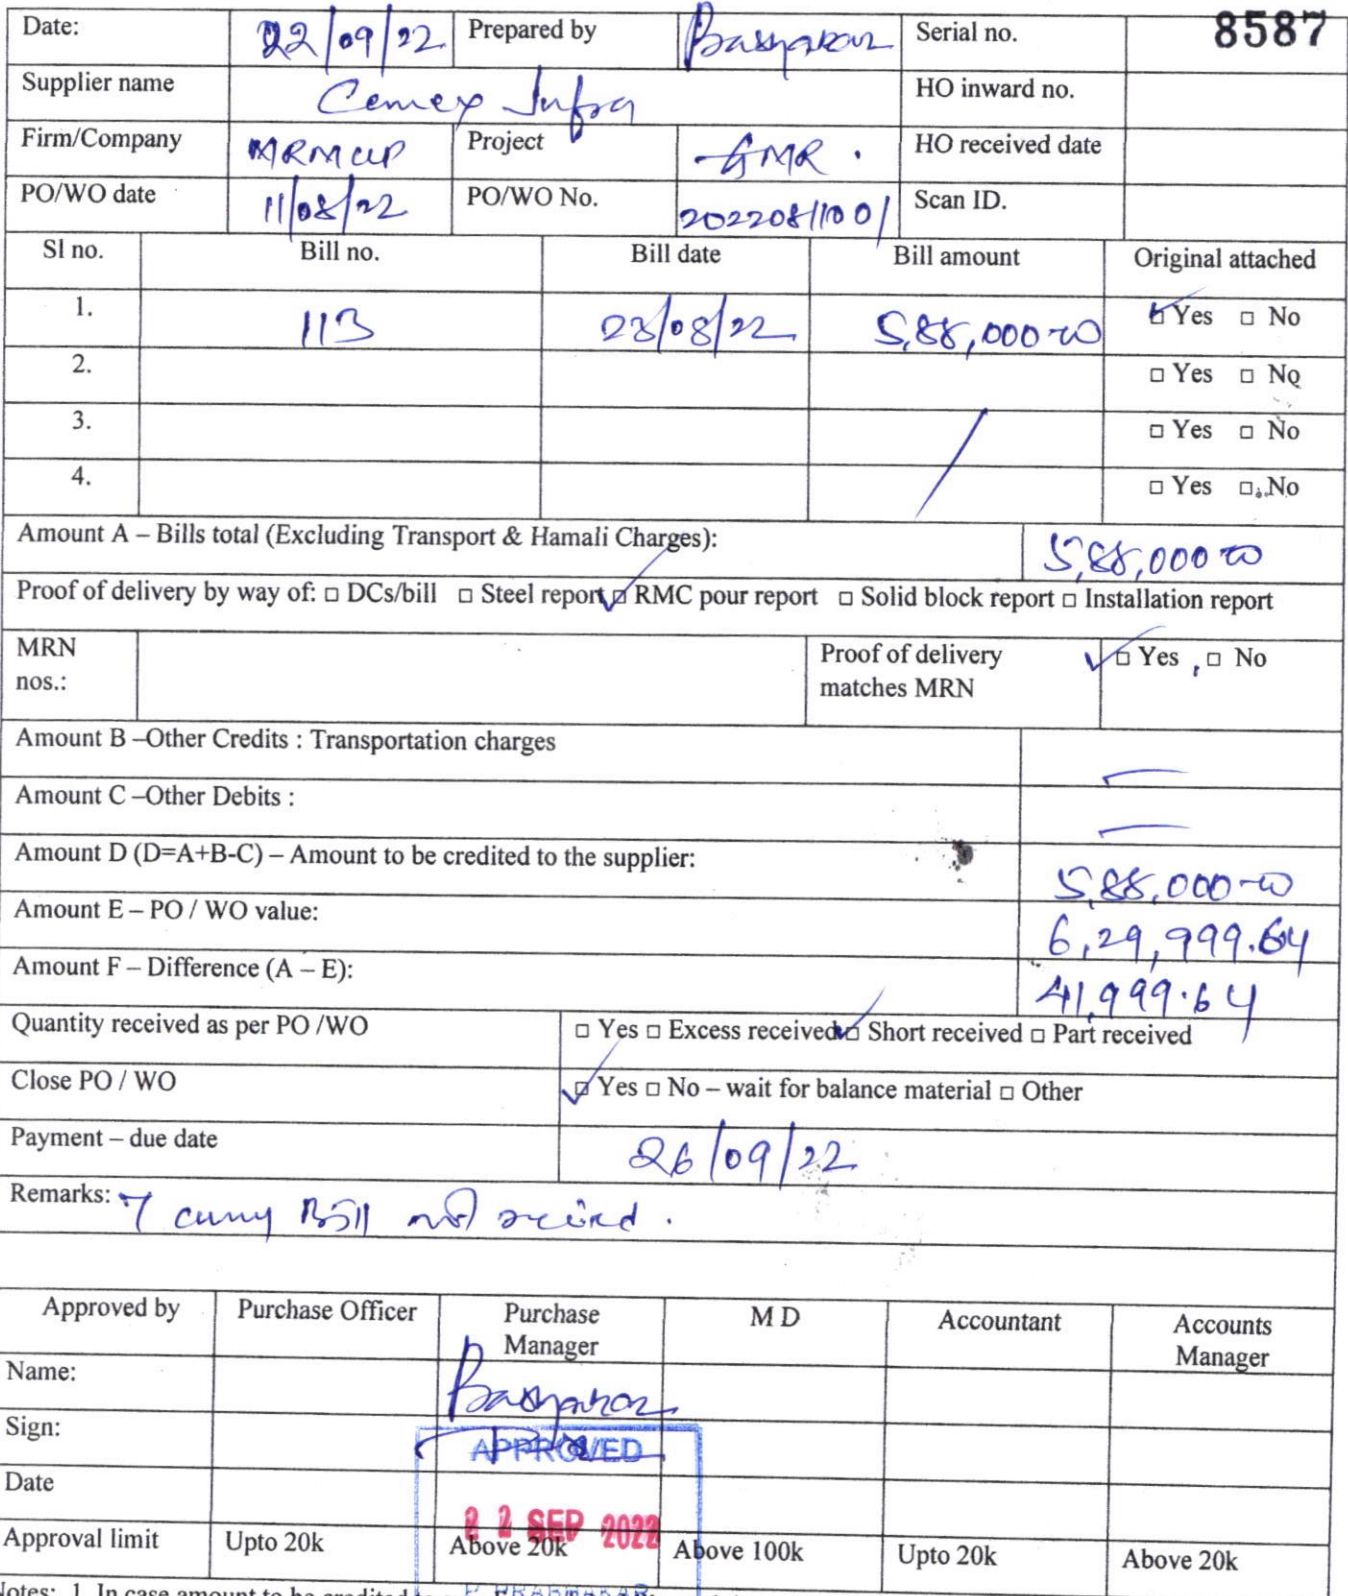 Date: 22/09/22 Prepared by Serial no. 8587
Supplier name Cemex Infra HO inward no.
Firm/Company MRMLLP Project GMR. HO received date
PO/WO date 11/08/22 PO/WO No. 20220811001 Scan ID.
Sl no. Bill no. Bill date Bill amount Original attached
1. 113 23/08/22 5,88,000-00 □ Yes □ No
2. □ Yes □ No
3. □ Yes □ No
4. □ Yes □ No
Amount A – Bills total (Excluding Transport & Hamali Charges): 5,88,000 00
Proof of delivery by way of: □ DCs/bill □ Steel report □ RMC pour report □ Solid block report □ Installation report
MRN nos.: Proof of delivery matches MRN □ Yes □ No
Amount B –Other Credits : Transportation charges —
Amount C –Other Debits : —
Amount D (D=A+B-C) – Amount to be credited to the supplier: 5,88,000-00
Amount E – PO / WO value: 6,29,999.64
Amount F – Difference (A – E): 41,999.64
Quantity received as per PO /WO □ Yes □ Excess received □ Short received □ Part received
Close PO / WO □ Yes □ No – wait for balance material □ Other
Payment – due date 26/09/22
Remarks: Bill not
Approved by Purchase Officer Purchase Manager M D Accountant Accounts Manager
Name:
Sign: APPROVED
Date 22 SEP 2022
Approval limit Upto 20k Above 20k Above 100k Upto 20k Above 20k
Notes: 1. In case amount to be credited